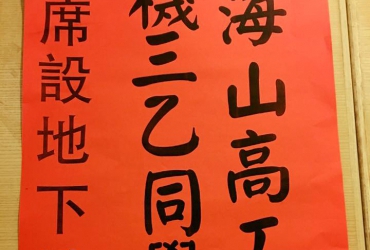 海山高工
機三乙同學
席設地下